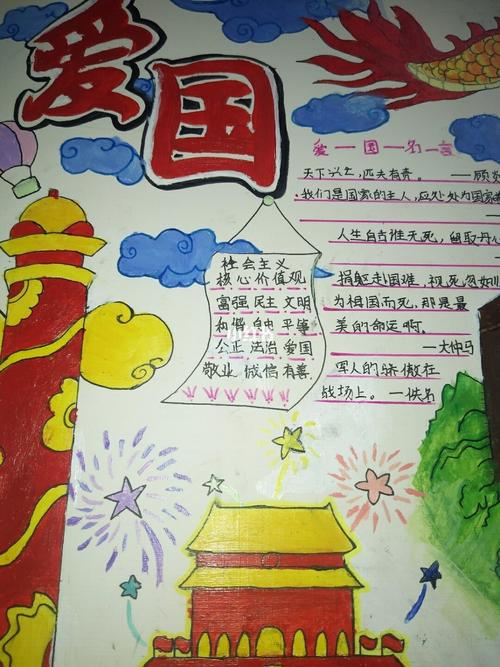 爱国
爱—国—名—言
天下兴亡,匹夫有责。——顾
我们是国家的主人,应处处为国家
人生自古谁无死,留取丹
捐躯赴国难,视死忽如
为祖国而死,那是最
美的命运啊。
—大仲马
军人的骄傲在
战场上。—佚名
社会主义
核心价值观
富强 民主 文明
和谐 自由 平等
公正 法治 爱国
敬业 诚信 有善